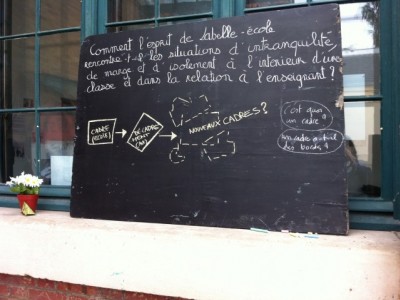 Comment l'esprit de labelle-école
rencontre-t-il les situations d'intranquilité,
de marge et d'isolement à l'intérieur d'une
classe et dans la relation à l'enseignant ?
CADRE
(ECOLE)
DÉCADRE
MENT
NOUVEAUX CADRES ?
c'est quoi
un cadre ?
Un cadre a-t-il
des bords ?